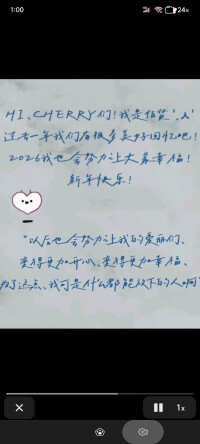 1:00
24%
HI、CHERRY们!我是佰萓'.人'
过去一年我们有很多美好回忆吧!
2026我也会努力让大家幸福!
新年快乐!
"以后也会努力让我的爱丽们、
变得更加开心、变得更加幸福、
为了这点、我可是什么都能放下的人啊"
1x